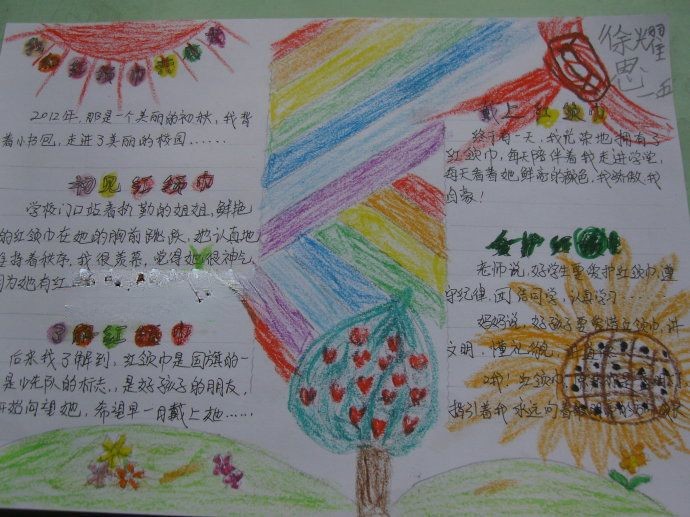 2012年,那是一个美丽的初秋,我背
着小书包,走进了美丽的校园……
初见红领巾
学校门口站着执勤的姐姐,鲜艳
的红领巾在她的胸前跳跃,她认真地
维持着秩序,我很羡慕,觉得她很神气
因为她有红
了解红领巾
后来我了解到,红领巾是国旗的一
是少先队的标志,是好孩子的朋友,
开始向望她,希望早一日戴上她……
徐耀
思
二五
戴上红领巾
终于有一天,我光荣地拥有了
红领巾,每天陪伴着我走进学堂,
每天看着她鲜亮的颜色,我骄傲,我
自豪!
爱护红领巾
老师说,好学生要爱护红领巾,遵
守纪律,团结同学,认真学习……
妈妈说,好孩子要爱惜红领巾,讲
文明,懂礼貌,
哦!红领巾,
指引着我永远向着